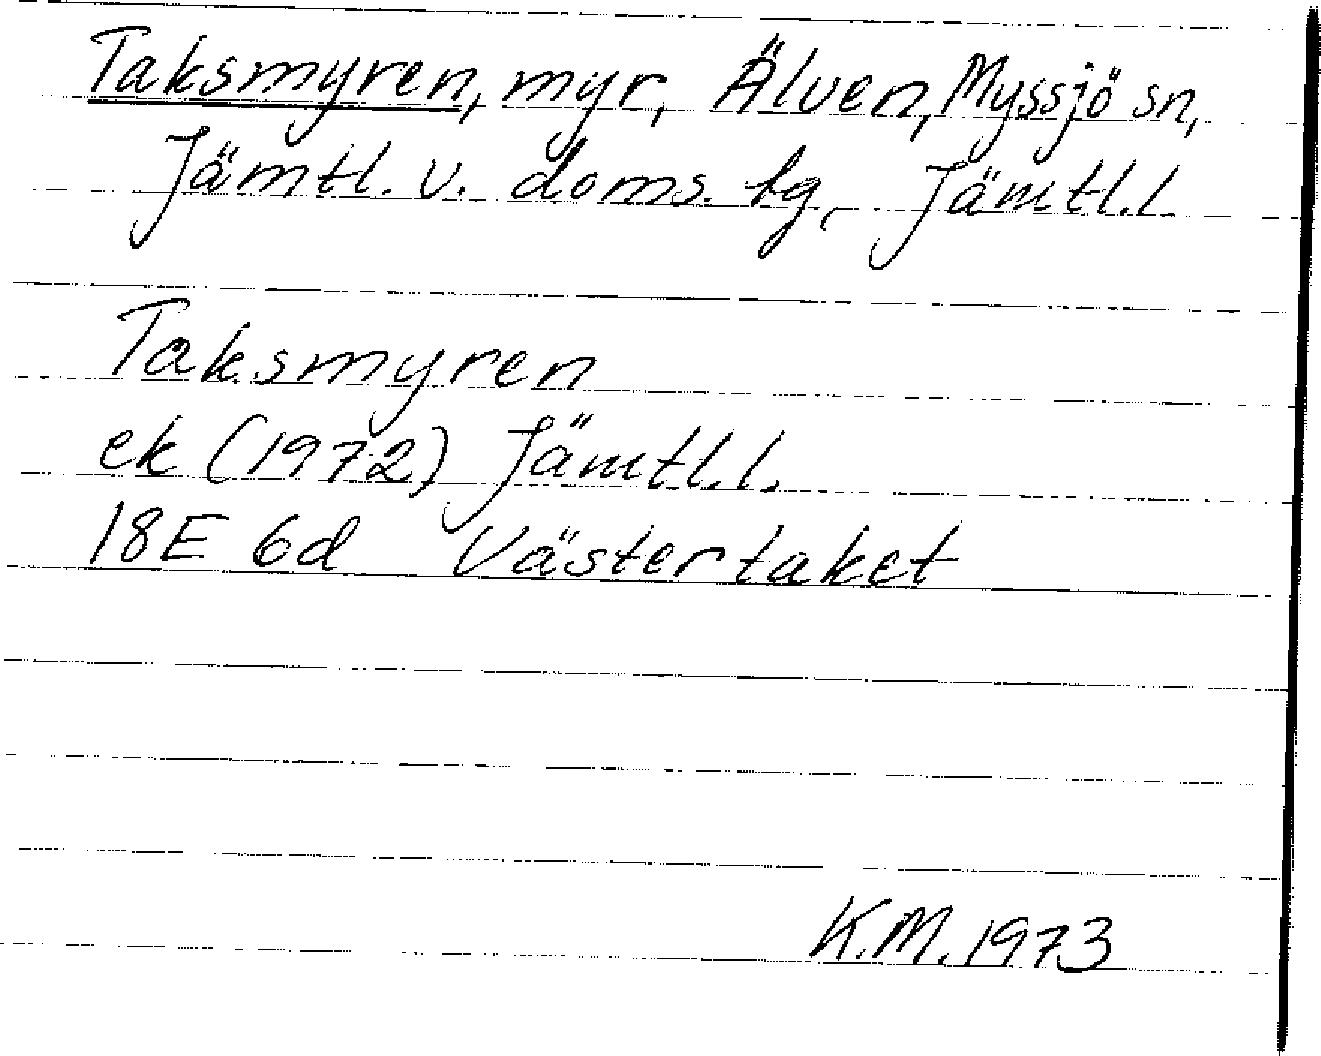 Taksmyren, myr, Älven, Myssjö sn,
Jämtl. v. doms. tg, Jämtl.l.
Taksmyren
ek (1972) Jämtl.l.
18E 6d Västertaket
K.M. 1973